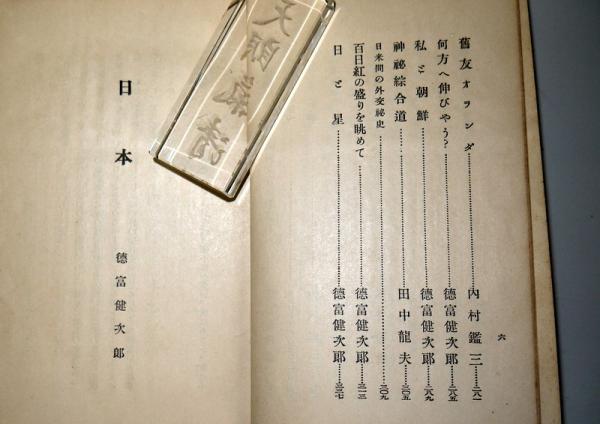 六
舊友オランダ……内村鑑三…二八一
何方へ伸びやう?……德富健次郎…二八五
私と朝鮮……德富健次郎…二八九
神祕綜合道……田中龍夫…三〇五
日米間の外交祕史……三〇九
百日紅の盛りを眺めて……德富健次郎…三一三
日と星……德富健次郎…三三七
日本
德富健次郎